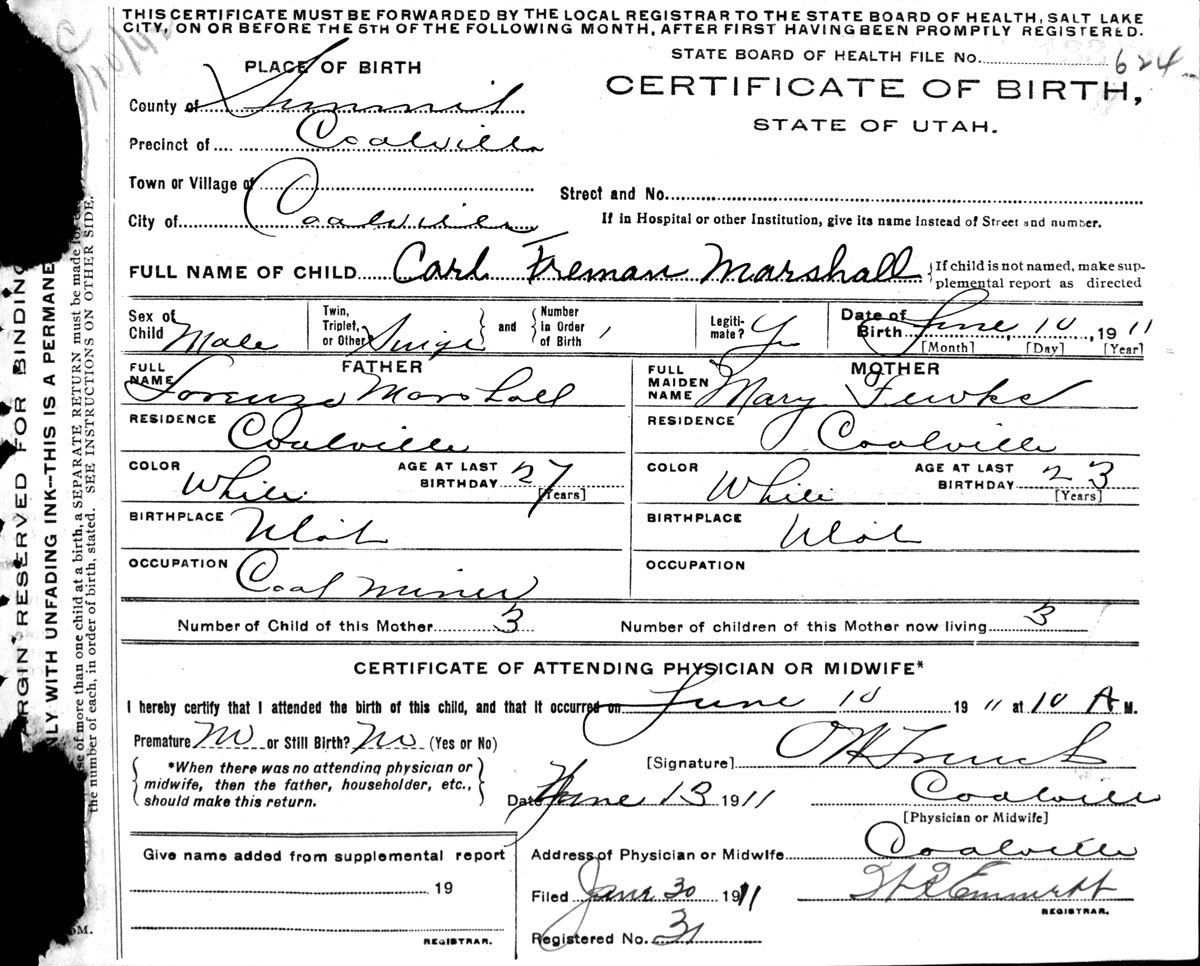 THIS CERTIFICATE MUST BE FORWARDED BY THE LOCAL REGISTRAR TO THE STATE BOARD OF HEALTH, SALT LAKE
CITY, ON OR BEFORE THE 5TH OF THE FOLLOWING MONTH, AFTER FIRST HAVING BEEN PROMPTLY REGISTERED.
STATE BOARD OF HEALTH FILE No. 624
PLACE OF BIRTH
CERTIFICATE OF BIRTH,
STATE OF UTAH.
County of Summit
Precinct of Coalville
Town or Village of
Street and No.
City of Coalville
If in Hospital or other Institution, give its name instead of Street and number.
FULL NAME OF CHILD Carl Freman Marshall
{If child is not named, make sup-
plemental report as directed
Sex of Child Male
Twin, Triplet, or Other Single
and Number in Order of Birth 1
Legiti-mate? Yes
Date of Birth June 10, 1911
[Month] [Day] [Year]
FATHER
FULL NAME Lorenzo Marshall
RESIDENCE Coalville
COLOR White
AGE AT LAST BIRTHDAY 27
[Years]
BIRTHPLACE Utah
OCCUPATION Coal Miner
MOTHER
FULL MAIDEN NAME Mary Fewks
RESIDENCE Coalville
COLOR White
AGE AT LAST BIRTHDAY 23
[Years]
BIRTHPLACE Utah
OCCUPATION
Number of Child of this Mother 3
Number of children of this Mother now living 3
CERTIFICATE OF ATTENDING PHYSICIAN OR MIDWIFE*
I hereby certify that I attended the birth of this child, and that it occurred on June 10 1911 at 10 A M.
Premature No or Still Birth? No (Yes or No)
*When there was no attending physician or
midwife, then the father, householder, etc.,
should make this return.
[Signature]
Date June 13 1911
Coalville
[Physician or Midwife]
Give name added from supplemental report
19
REGISTRAR.
Address of Physician or Midwife Coalville
Filed June 30 1911
Emmett
REGISTRAR.
Registered No. 31
ARGIN RESERVED FOR BINDING
NLY WITH UNFADING INK—THIS IS A PERMANE
se of more than one child at a birth, a SEPARATE RETURN must be made for
the number of each, in order of birth, stated. SEE INSTRUCTIONS ON OTHER SIDE.